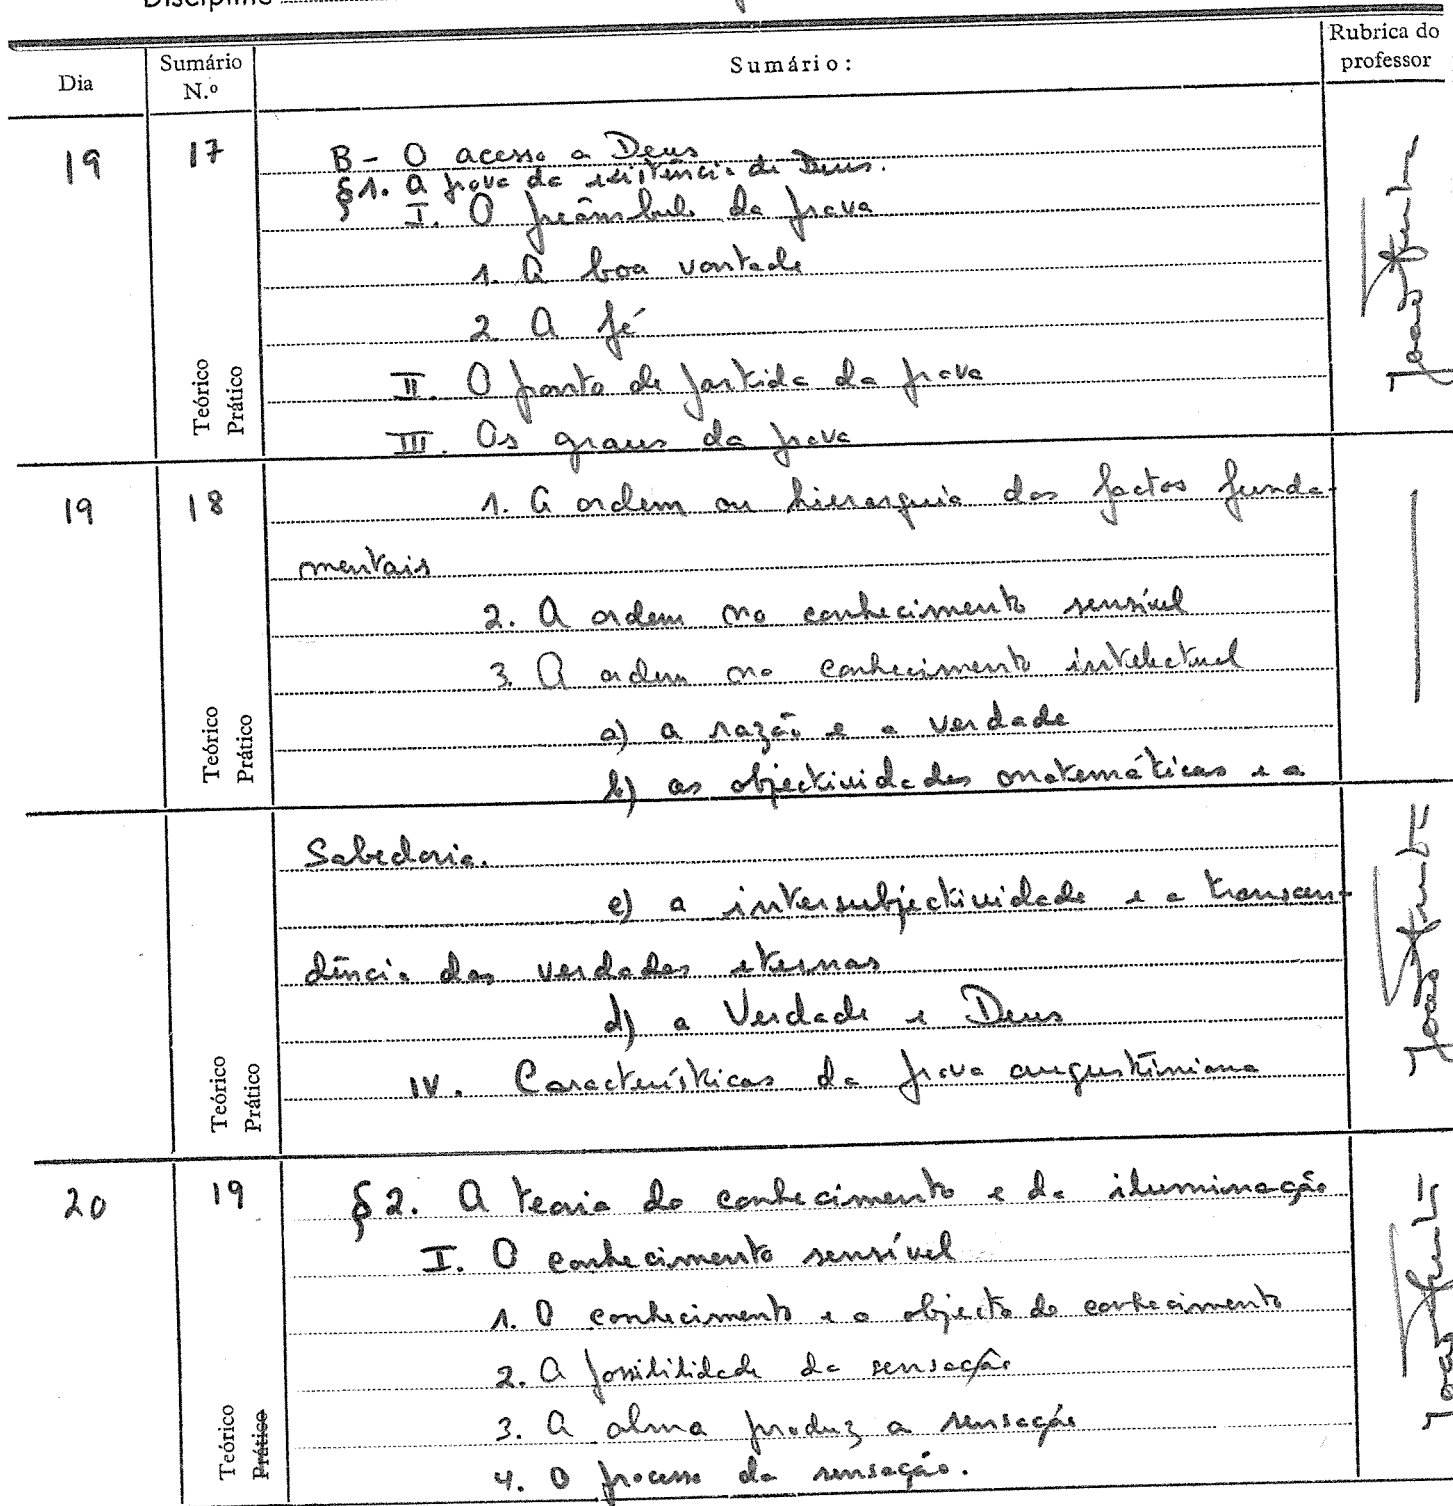 Disciplina
Dia
Sumário N.º
Sumário:
Rubrica do professor
19
17
B - O acesso a Deus
§1. A prova da existência de Deus.
I. O preâmbulo da prova
1. A boa vontade
2. A fé
II. O ponto de partida da prova
III. Os graus da prova
Teórico
Prático
19
18
1. A ordem ou hierarquia dos factos funda-
mentais
2. A ordem no conhecimento sensível
3. A ordem no conhecimento intelectual
a) a razão e a verdade
b) as objectividades matemáticas e a
Teórico
Prático
Sabedoria.
c) a intersubjectividade e a transcen-
dência das verdades eternas
d) a Verdade e Deus
IV. Características da prova augustiniana
Teórico
Prático
20
19
§2. A teoria do conhecimento e da iluminação
I. O conhecimento sensível
1. O conhecimento e o objecto do conhecimento
2. A possibilidade da sensação
3. A alma produz a sensação
4. O processo da sensação.
Teórico
Prático